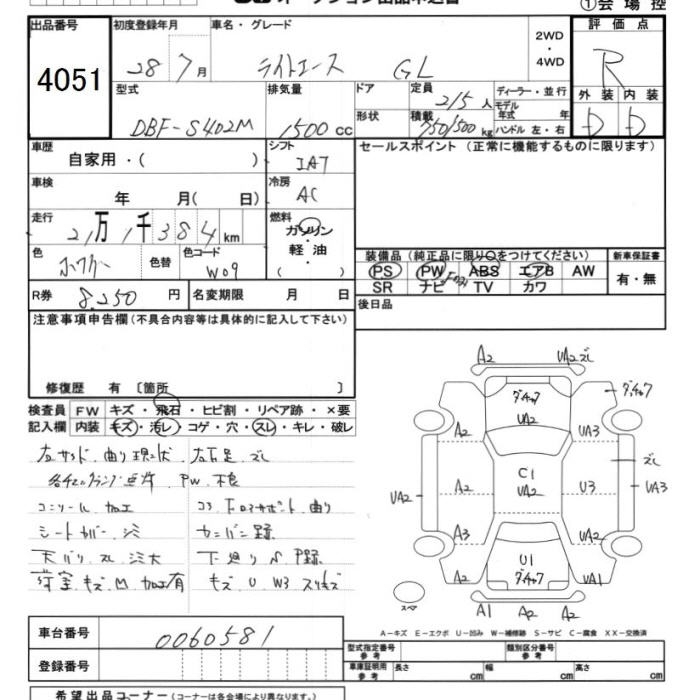 ①会場控
出品番号
4051
初度登録年月
28 7月
車名・グレード
ライトエース GL
2WD
・
4WD
評価点
R
型式
DBF-S402M
排気量
1500cc
ドア
形状
定員
2/5人
積載
750/500kg
ディーラー・並行
モデル年式 年
ハンドル 左・右
外装 内装
D D
車歴
自家用・( )
シフト
IA7
セールスポイント (正常に機能するものに限ります)
車検
年 月( 日)
冷房
AC
走行
2万1千384km
燃料
ガソリン
・
軽油
色
ホワイト
色替
色コード
W09
装備品 (純正品に限り○をつけてください)
PS PW ABS エアB AW
SR ナビ TV カワ
新車保証書
有・無
R券
8,250円
名変期限 月 日
後日品
注意事項申告欄(不具合内容等は具体的に記入して下さい)
修復歴 有 〔箇所 〕
検査員記入欄
FW キズ・飛石・ヒビ割・リペア跡・×要
内装 キズ・汚レ・コゲ・穴・スレ・キレ・破レ
PW 不良
加工
曲り
シートカバー シミ
天バリ
下廻り
キズ U W3
A2 UA2 ズレ
ダ.チャク
UA2
ダ.チャク
A2 UA3
ズレ
UA2 A2 C1 UA2 U3 UA3
A3 UA2
U1
ダ.チャク
A2 UA1
スペア
A1 A2 A2
A-キズ E-エクボ U-凹み W-補修跡 S-サビ C-腐食 XX-交換済
車台番号
0060581
登録番号
型式指定番号 参考
類別区分番号 参考
車庫証明用 参考
長さ cm 幅 cm 高さ cm
希望出品コーナー (コーナーは各会場により異なります。)